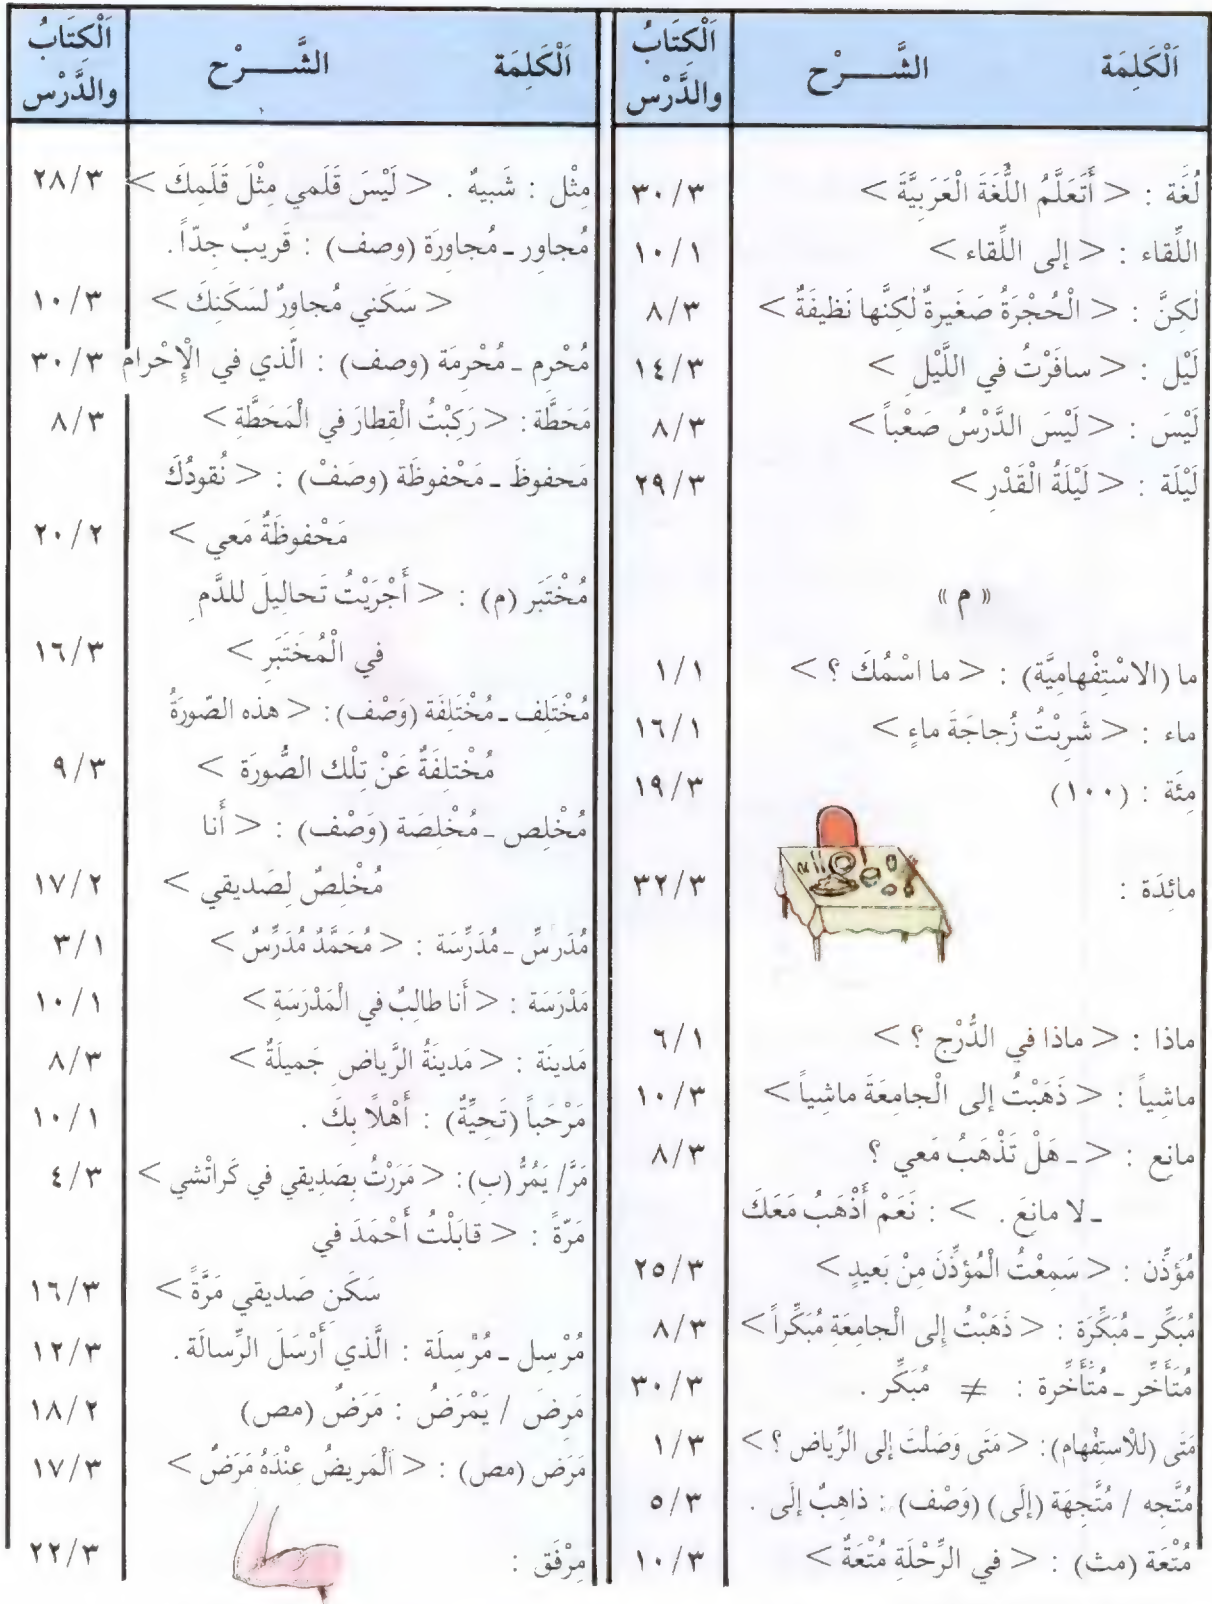 اَلْكَلِمَة الشَّـــرْح اَلْكِتَابُ والدَّرْس
لُغَة : < أَتَعَلَّمُ اللُّغَةَ الْعَرَبِيَّةَ > ٣٠/٣
اللِّقاء : < إلى اللِّقاء > ١٠/١
لٰكِنَّ : < الْحُجْرَةُ صَغيرةٌ لٰكِنَّها نَظيفَةٌ > ٨/٣
لَيْل : < سافَرْتُ في اللَّيْلِ > ١٤/٣
لَيْسَ : < لَيْسَ الدَّرْسُ صَعْباً > ٨/٣
لَيْلَة : < لَيْلَةُ الْقَدْرِ > ٢٩/٣
« م »
ما (الاسْتِفْهامِيَّة) : < ما اسْمُكَ ؟ > ١/١
ماء : < شَرِبْتُ زُجاجَةَ ماءٍ > ١٦/١
مِئَة : (١٠٠) ١٩/٣
مائِدَة : ٣٢/٣
ماذا : < ماذا في الدُّرْج ؟ > ٦/١
ماشِياً : < ذَهَبْتُ إلى الْجامِعَةَ ماشِياً > ١٠/٣
مانِع : < ـ هَلْ تَذْهَبُ مَعي ؟ ٨/٣
ـ لا مانِعَ . > : نَعَمْ أَذْهَبُ مَعَكَ
مُؤَذِّن : < سَمِعْتُ الْمُؤذِّنَ مِنْ بَعيدٍ > ٢٥/٣
مُبَكِّر ـ مُبَكِّرَة : < ذَهَبْتُ إِلى الْجامِعَةِ مُبَكِّراً > ٨/٣
مُتَأَخِّر ـ مُتَأَخِّرة : ≠ مُبَكِّر . ٣٠/٣
مَتَى (للْاستِفْهام) : < مَتَى وَصَلْتَ إلى الرِّياض ؟ > ١/٣
مُتَّجه / مُتَّجِهَة (إلَى) (وَصْف) : ذاهِبٌ إلَى . ٥/٣
مُتْعَة (مث) : < في الرِّحْلَةِ مُتْعَةٌ > ١٠/٣
اَلْكَلِمَة الشَّـــرْح اَلْكِتَابُ والدَّرْس
مِثْل : شَبيهٌ . < لَيْسَ قَلَمي مِثْلَ قَلَمِكَ > ٢٨/٣
مُجاور ـ مُجاورَة (وصف) : قَريبٌ جِدّاً .
< سَكَني مُجاورٌ لسَكَنِكَ > ١٠/٣
مُحْرِم ـ مُحْرِمَة (وصف) : الّذي في الْإِحْرام ٣٠/٣
مَحَطَّة : < رَكِبْتُ الْقِطارَ في الْمَحَطَّةِ > ٨/٣
مَحفوظَ ـ مَحْفوظَة (وصَفْ) : < نُقودُكَ
مَحْفوظَةٌ مَعي > ٢٠/٢
مُخْتَبَر (م) : < أَجْرَيْتُ تَحالِيلَ للدَّمِ
في الْمُختَبَرِ > ١٦/٣
مُخْتَلِف ـ مُخْتَلِفَة (وَصْف) : < هذه الصّورَةُ
مُخْتلِفَةٌ عَنْ تِلْك الصُّورَة > ٩/٣
مُخْلِص ـ مُخْلِصَة (وَصْف) : < أَنا
مُخْلِصٌ لِصَديقي > ١٧/٢
مُدَرِسٌّ ـ مُدَرِّسَة : < مُحَمَّدٌ مُدَرِّسٌ > ٣/١
مَدْرَسَة : < أَنا طالِبٌ في الْمَدْرَسَةِ > ١٠/١
مَدينَة : < مَدينَةُ الرِّياضِ جَميلَةٌ > ٨/٣
مَرْحَباً (تَحِيَّةٌ) : أَهْلًا بِكَ . ١٠/١
مَرَّ/ يَمُرُّ (ب) : < مَرَرْتُ بِصَديقي في كَراتْشي > ٤/٣
مَرّةً : < قابَلْتُ أَحْمَدَ في
سَكَنِ صَديقي مَرَّةً > ١٦/٣
مُرْسِل ـ مُرْسِلَة : الَّذي أَرْسَلَ الرِّسالَة . ١٢/٣
مَرِضَ / يَمْرَضُ : مَرَضٌ (مص) ١٨/٢
مَرَض (مص) : < اَلْمَريضُ عِنْدَهُ مَرَضٌ > ١٧/٣
مِرْفَق : ٢٢/٣